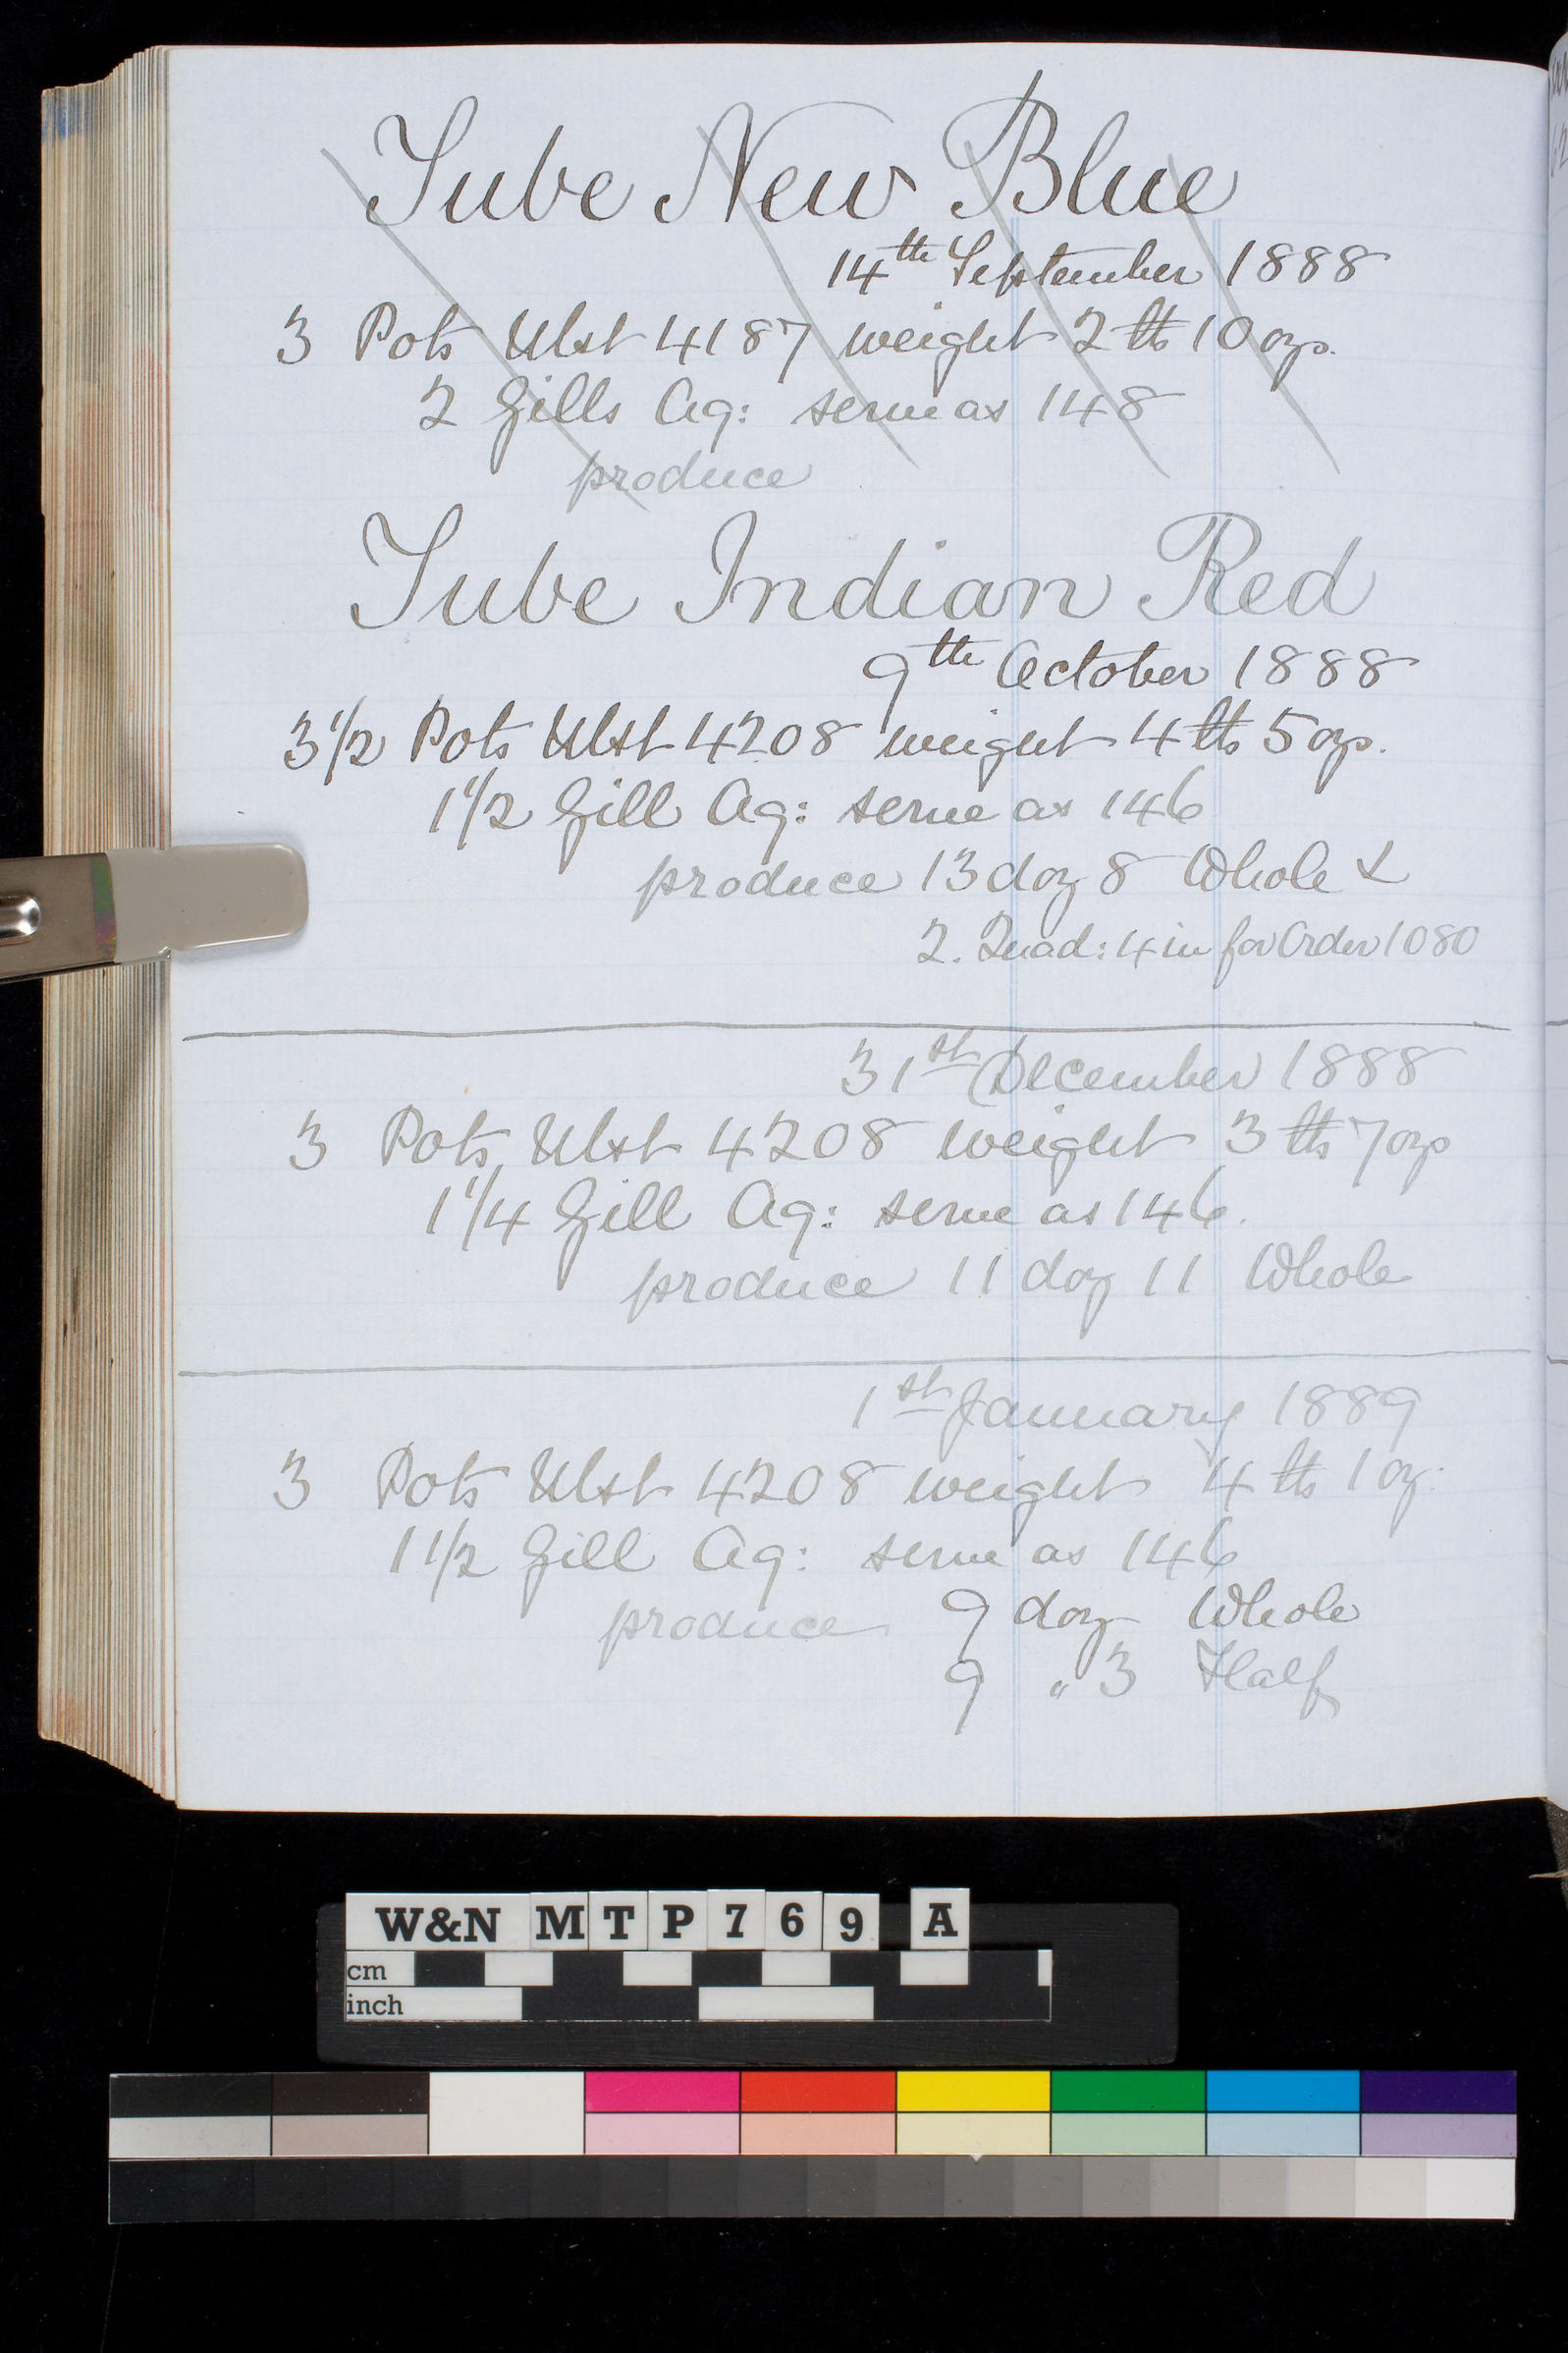 Tube New Blue
14th September 1888
3 Pots Ulst 4187 weight 2 lb 10 ozs.
2 Gills Aq: serve as 148
produce
Tube Indian Red
9th October 1888
3 1/2 Pots Ulst 4208 weight 4 lb 5 ozs.
1 1/2 Gill Aq: serve as 146
produce 13 doz 8 Whole &
2. Quad: 4 in for Order 1080
31st December 1888
3 Pots Ulst 4208 weight 3 lb 7 ozs
1 1/4 Gill Aq: serve as 146.
produce 11 doz 11 Whole
1st January 1889
3 Pots Ulst 4208 weight 4 lb 1 oz.
1 1/2 Gill Aq: serve as 146
produce 9 doz Whole
9 " 3 Half
W&N MTP769 A
cm
inch